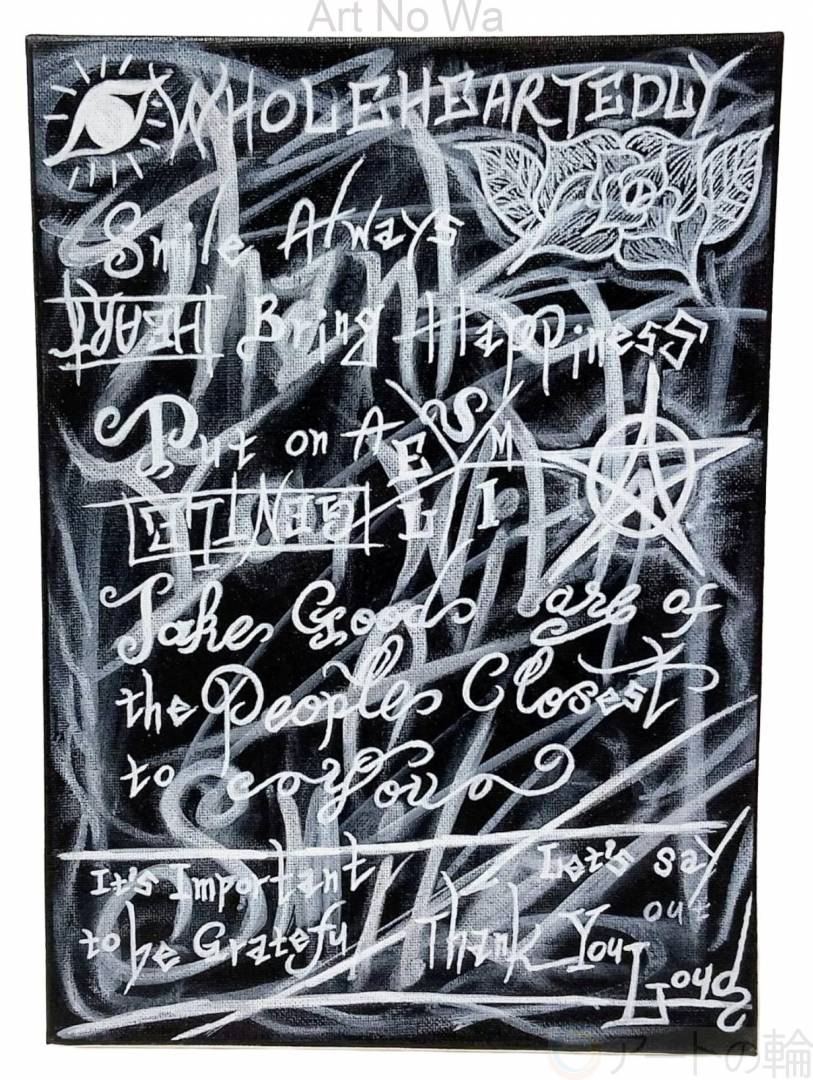 Art No Wa
WHOLEHEARTEDLY
Smile Always
HEART Bring Happiness
Put on A SMILE
GENTLE
Take Good Care of
the People Closest
to You
It's Important
to be Grateful
Let's say
out
Thank You Loud
アートの輪